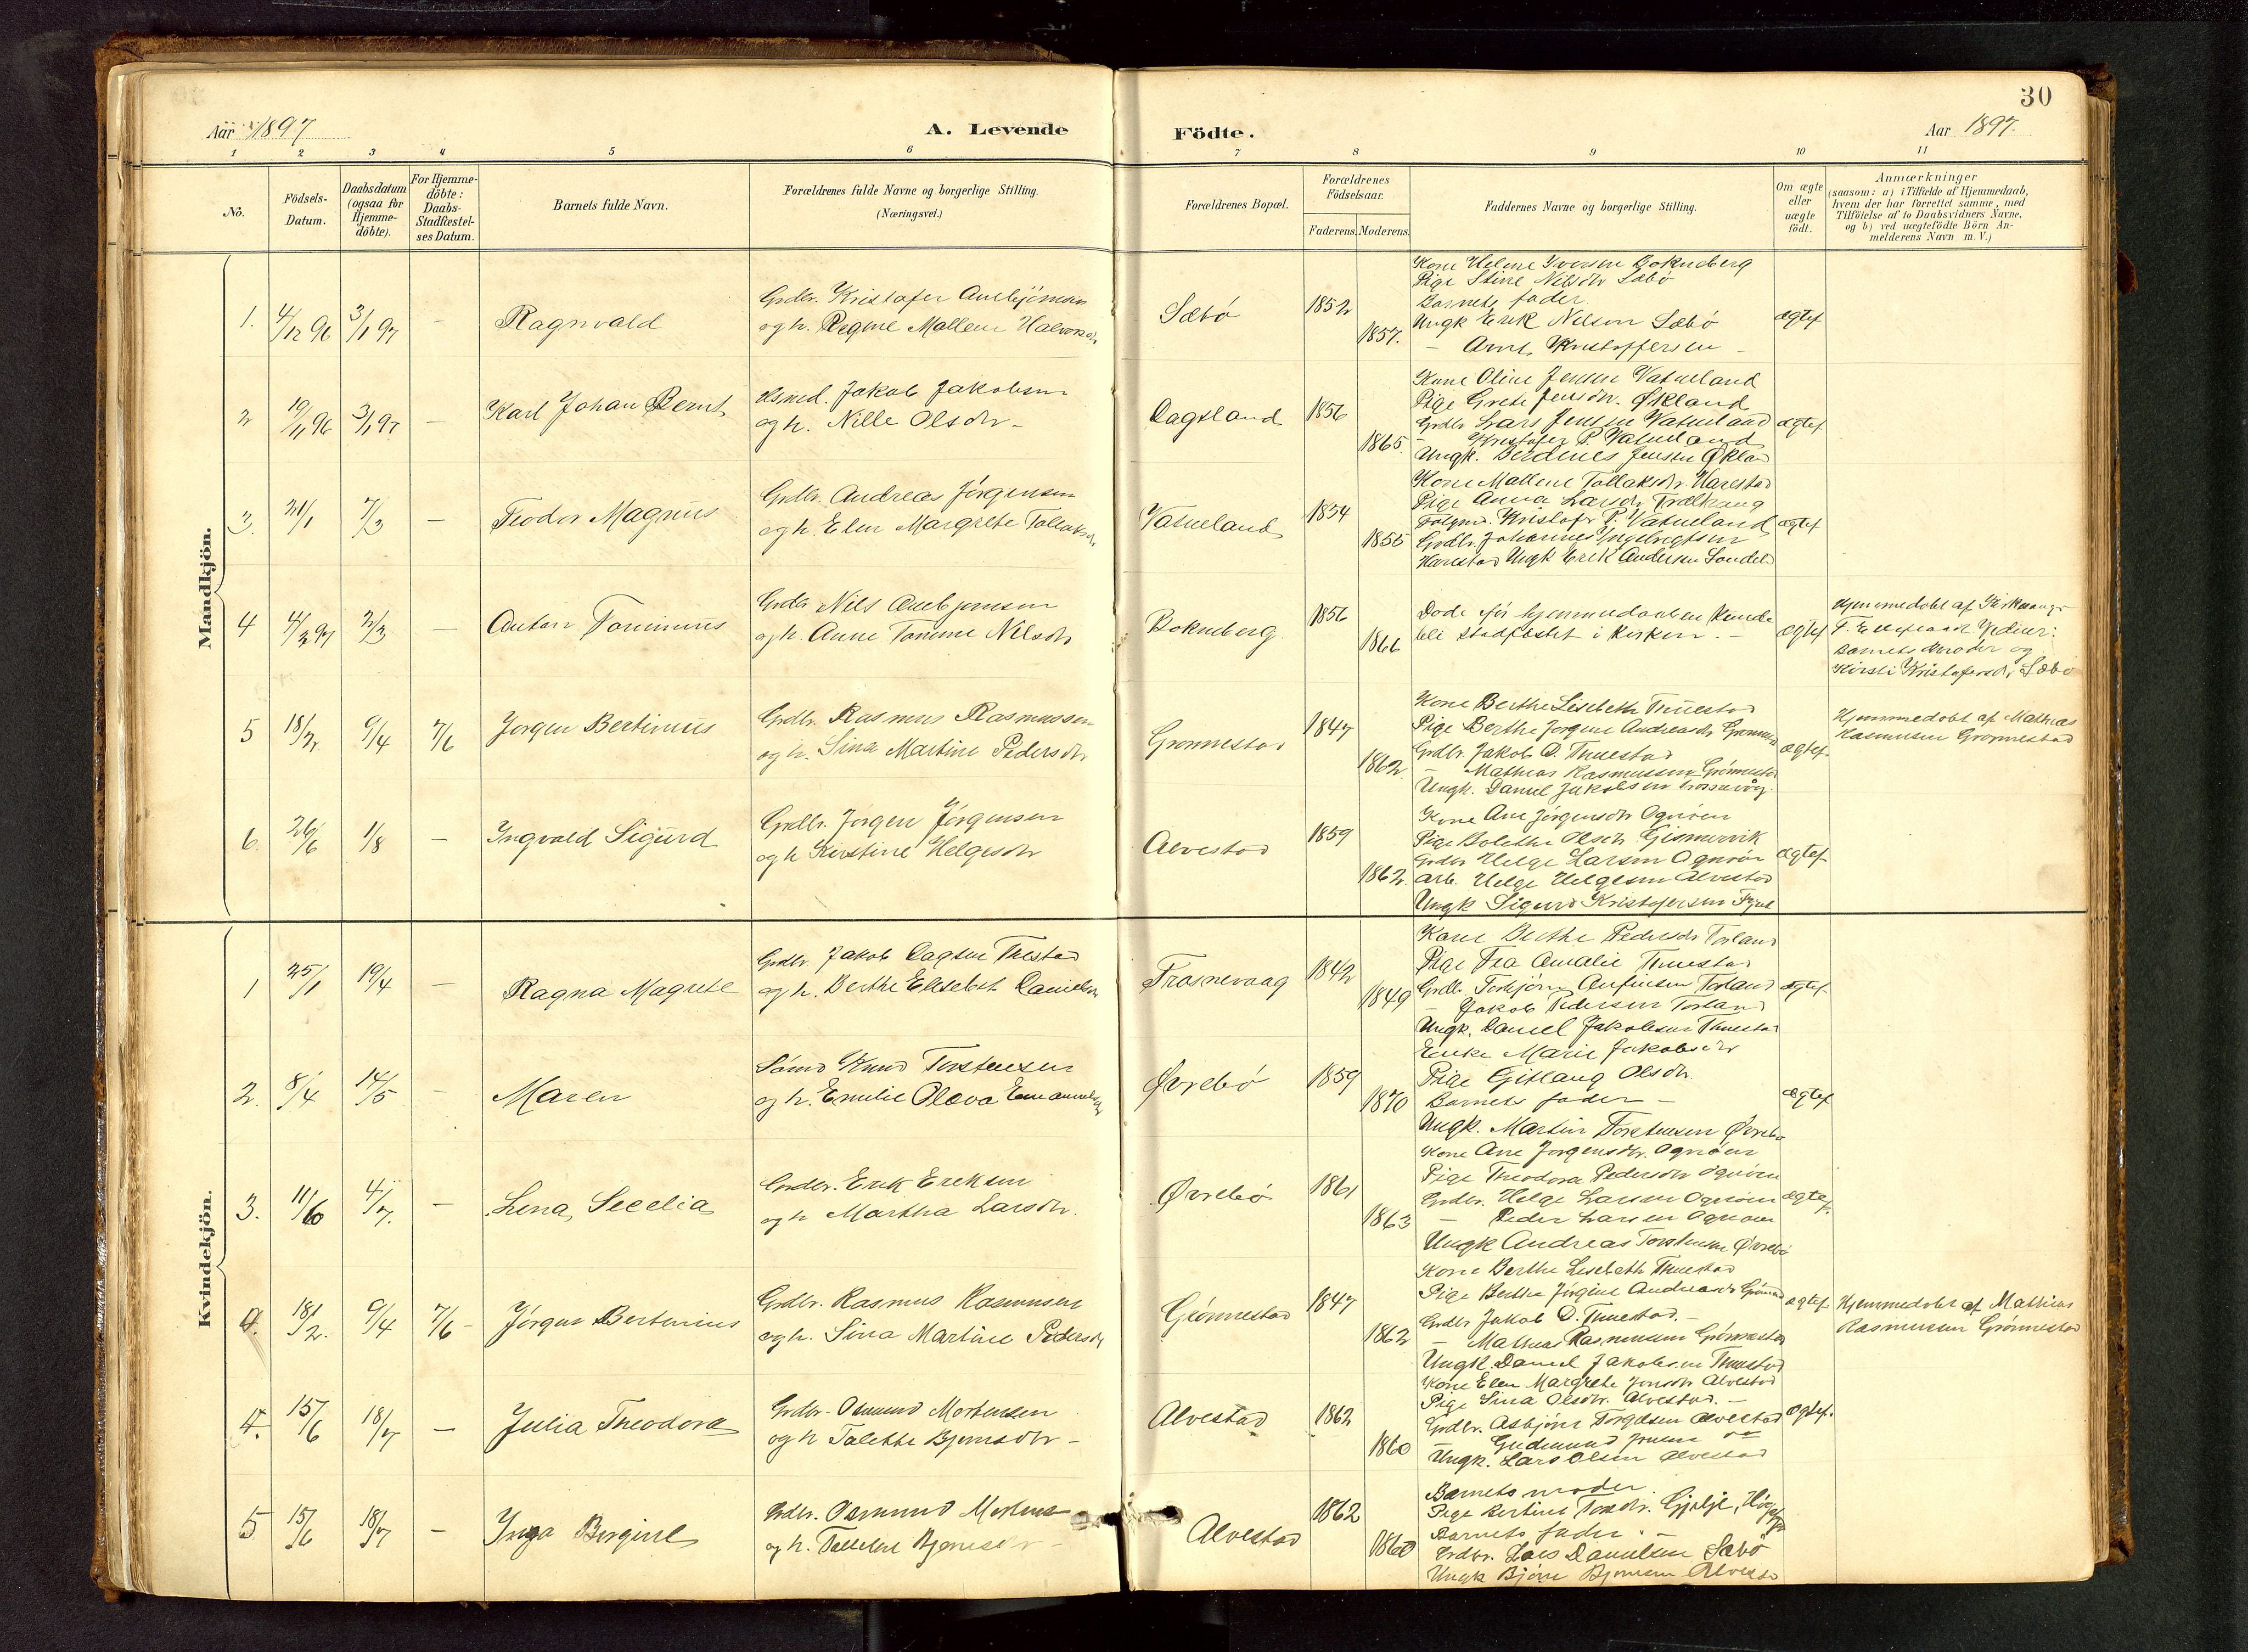 30
Aar 1897
A. Levende
Födte.
Aar 1897.
1 2 3 4 5 6 7 8 9 10 11
No.
Födsels-
Datum.
Daabsdatum
(ogsaa for
Hjemme-
döbte).
For Hjemme-
döbte:
Daabs-
Stadfæstel-
ses Datum.
Barnets fulde Navn.
Forældrenes fulde Navne og borgerlige Stilling.
(Næringsvei.)
Forældrenes Bopæl.
Forældrenes
Födselsaar.
Faderens.
Moderens.
Faddernes Navne og borgerlige Stilling.
Om ægte
eller
uægte
födt.
Anmærkninger
(saasom: a) i Tilfælde af Hjemmedaab,
hvem der har forrettet samme, med
Tilföielse af to Daabsvidners Navne,
og b) ved uægtefödte Börn An-
melderens Navn m. V.)
Mandkjön.
1. 4/12 96 3/1 97 - Ragnvald
Grdbr. Kristofer
og h. Regine Mallene Halvorsdr
Sæbö 1852 1857.
Kone Helene Iversen Bokneberg
Pige Stine Nilsdr Sæbö
Barnets fader.
Ungk Erik Nilsen Sæbö
- Kristoffersen -
ægtef
2 19/11 96 3/1 97 - Karl Johan Bernt
Hsmd. Jakob Jakobsen
og h. Nille Olsdr -
Dagsland 1856 1865.
Kone Oline Jensen Vatneland
Pige Grete Jensdr. Økland
Grdbr Lars Jensen Vatneland
- Kristofer P. Vatneland
Ungk. Jensen Økland
ægtef
3. 31/1 7/3 - Teodor Magnus
Grdbr. Andreas Jörgensen
og h. Elen Margrete Tollaksdr
Vatneland 1854 1855
Kone Mallene Tollaksdr Harestad
Pige Anna Larsdr
Kristofer P. Vatneland
Grdbr. Johannes Ingebregtsen
Harestad Ungk Erik Andersen
ægtef
4 4/2 97 2/3 - Anton Tominius
Grdbr Nils
og h. Anne Tomine Nilsdr
Bokneberg 1856 1866
Döde för hjemmedaaben kunde
bli stadfæstet i kirken. -
ægtef
Hjemmedöbt af
T. Vidner:
Barnets moder og
Kirsti Kristofersdr, Sæbö
5 18/2. 9/4 7/6 Jorgen Bertinius
Grdbr. Rasmus Rasmussen
og h. Sina Martine Pedersdr
Grönnestad 1847 1862.
Kone Berthe Lesebeth Thuestad
Pige Berthe Jorgine Andreasdr
Grdbr. Jakob D. Thuestad
- Mathias Rasmussen Grönnestad
Ungk. Daniel Jakobsen
ægtef.
Hjemmedöbt af Mathias
Rasmusen Grönnestad
6. 26/6 1/8 - Ingvald Sigurd
Grdbr. Jörgen Jörgensen
og h Kirstine Helgesdr
Alvestad 1859 1862.
Kone Ane Jörgensdr Ognöen
Pige Bolethe Olsdr
Grdbr Helge Larsen Ognöen
Arb. Helge Helgesen Alvestad
Ungk Sigurd Kristofersen
ægtef
Kvindekjön.
1 25/1 19/4 - Ragna Magrete
Grdbr. Jakob Dagsen Thestad
og h. Berthe Elesebet Danielsdr
Frosnevaag 1842 1849
Kone Berthe Pedersdr Torland
Pige Tea Amalie Thuestad
Grdbr. Torbjörn Torland
- Jakob Pedersen Torland
Ungk. Daniel Jakobsen Thuestad
ægtef.
2. 8/4 14/5 - Maren
Knud Torstensen
og h. Emilie Olava Emanuelsdr
Øvrebö 1859 1870
Enke Marie Jakobsdr
Pige Gitlaug Olsdr.
Barnets fader -
Ungk. Martin Torstensen Øvrebö
ægtef
3. 11/6 4/7. - Lena Secelia
Grdbr. Erik Eriksen
og h Martha Larsdr.
Øvrebö 1861 1863
Kone Ane Jorgensdr. Ognöen
Pige Theodora Pedersdr Ognöen
Grdbr. Helge Larsen Ognöen
- Peder Larsen Ognöen
Ungk Andreas Torstensen Øvrebö
ægtef.
4. 18/2. 9/4 7/6 - Jörgen Bertinius
Grdbr. Rasmus Rasmusen
og h. Sina Martine Pedersdr
Grönnestad 1847 1862
Kone Berthe Lesebeth Thuestad
Pige Berthe Jörgine Andreasdr
Grdbr Jakob D. Thuestad. -
- Mathias Rasmusen Grönnestad
Ungk. Daniel Jakobsen Thuestad
ægtef
Hjemmedöbt af Mathias
Rasmusen Grönnestad
4. 15/6 18/7 - Julia Theodora
Grdbr. Osmund Mortensen
og h Talette Bjornsdr -
Alvestad 1862 1860
Kone Elen Margrete Jonsdr Alvestad
Pige Sina Olsdr. Alvestad. -
Grdbr. Asbjörn Torgilsen Alvestad
- Gudmund
Ungk. Lars Olsen Alvestad
ægtef.
5 15/6 18/7 - Inga Bergine
Grdbr. Osmund
og h. Bjornsdr -
Alvestad 1862 1860
Barnets moder.
Pige
Barnets fader. -
Grdbr. Lars Danielsen Sæbö
Ungk Bjornsen Alvestad